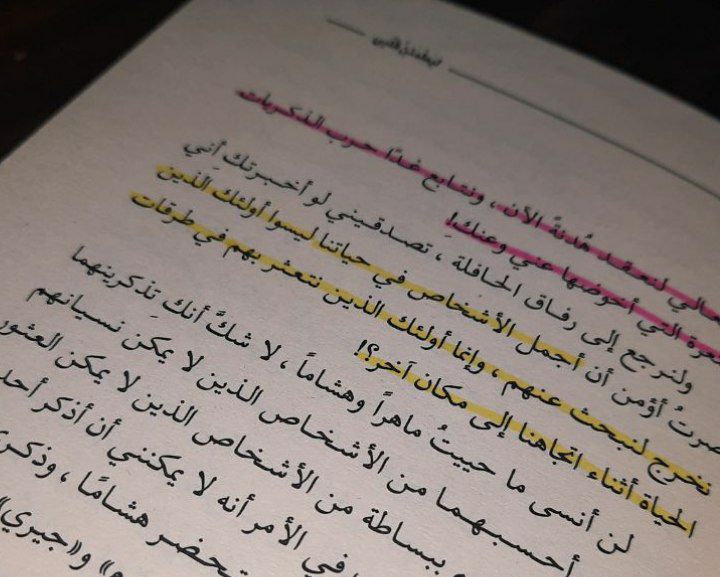 ليطمئن قلبي
تعالي لنعقد هُدنةً الآن، ونتابع غدًا حرب الذكريات
التي أخوضها عني وعنكِ!
ولنرجع إلى رفاق الحافلة، تصدقيني لو أخبرتك أني
صرتُ أؤمن أن أجمل الأشخاص في حياتنا ليسوا أولئك الذين
نخرج لنبحث عنهم، وإنما أولئك الذين نتعثر بهم في طرقات
الحياة أثناء اتجاهنا إلى مكان آخر؟!
لن أنسى ما حييتُ ماهراً وهشاماً، لا شكَّ أنكِ تذكرينهما
أحسبهما من الأشخاص الذين لا يمكن نسيانهم
ببساطة من الأشخاص الذين لا يمكن العثور
في الأمر أنه لا يمكنني أن أذكر أحد
تحضر هشامًا، وذكر
و«جيري»